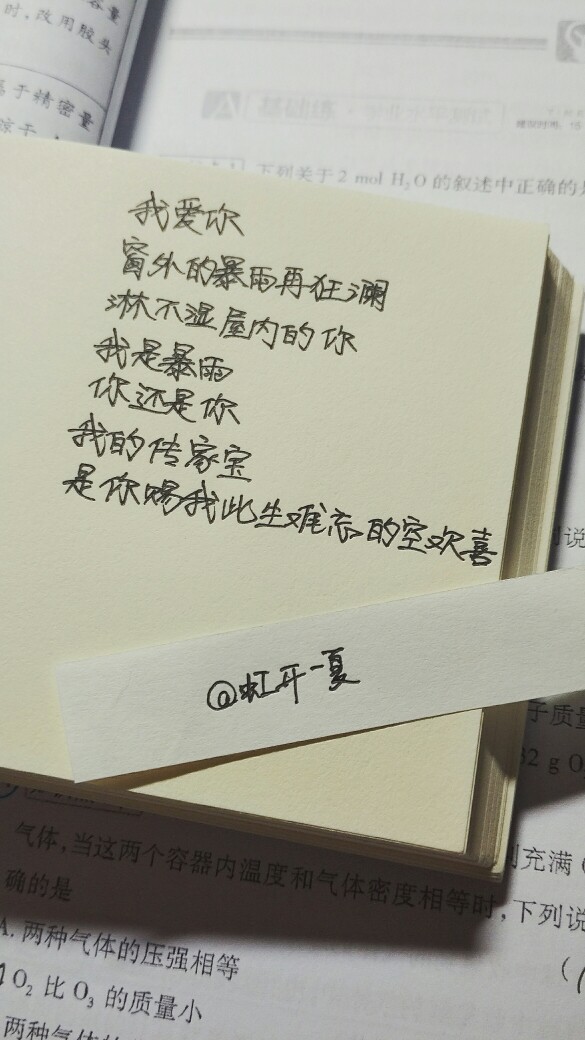 容量
时,改用胶头
属于精密量
下列关于2 mol H₂O的叙述中正确的是
我爱你
窗外的暴雨再狂澜
淋不湿屋内的你
我是暴雨
你还是你
我的传家宝
是你赐我此生难忘的空欢喜
@虹开一夏
列说
子质量
32 g O
气体,当这两个容器内温度和气体密度相等时,下列说
别充满
确的是
A. 两种气体的压强相等
O₂比O₃的质量小
两种气体的